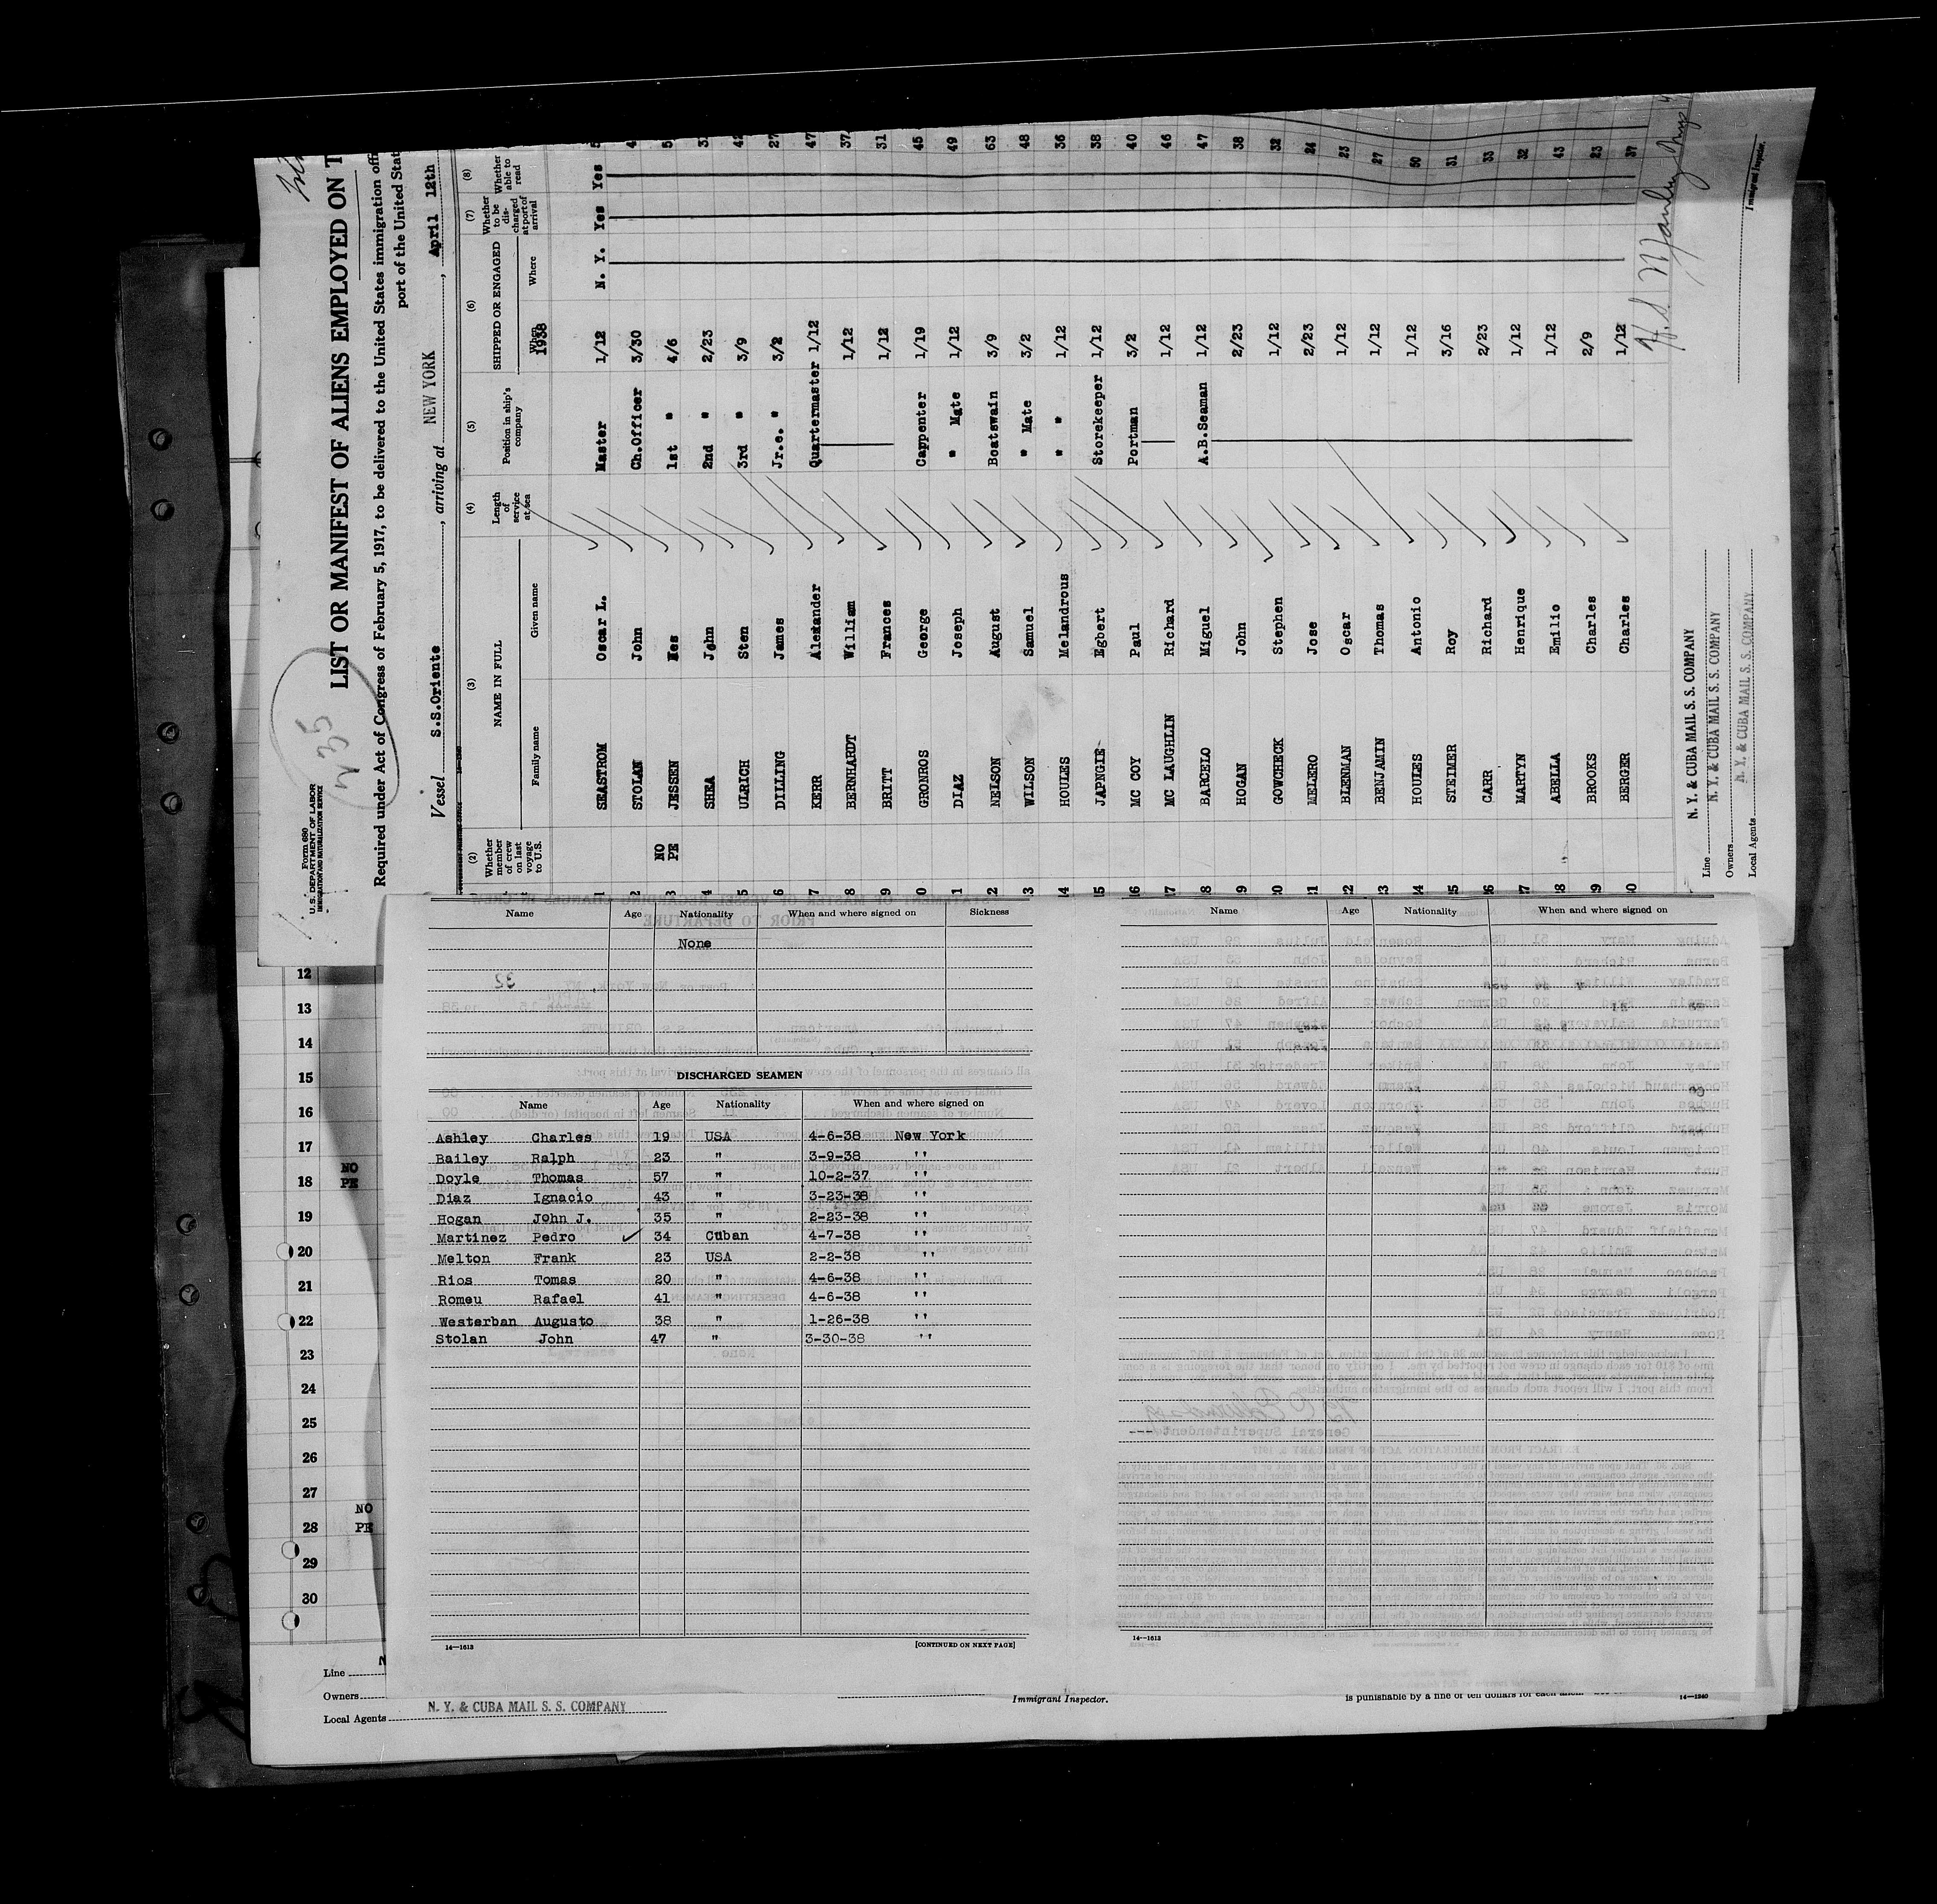 Form 680
U. S. DEPARTMENT OF LABOR
IMMIGRATION AND NATURALIZATION SERVICE
235
LIST OR MANIFEST OF ALIENS EMPLOYED ON T
Required under Act of Congress of February 5, 1917, to be delivered to the United States immigration offi
port of the United Stat
Vessel S.S.Oriente, arriving at NEW YORK, April 12th
(2) (3) (4) (5) (6) (7) (8)
Whether member of crew on last voyage to U.S. NAME IN FULL Length of service at sea Position in ship's company SHIPPED OR ENGAGED Whether to be discharged at port of arrival Whether able to read
Family name Given name When Where
1938
1 SEASTROM Oscar L. Master 1/12 N. Y. Yes Yes 5
2 STOLAN John Ch.Officer 3/30 4
3 NO PE JESSEN Nes 1st " 4/6 5
4 SHEA John 2nd " 2/23 3
5 ULRICH Sten 3rd " 3/9 42
6 DILLING James Jr.e. " 3/2 27
7 KERR Alexander Quartermaster 1/12 47
8 BERNHARDT William 1/12 37
9 BRITT Frances 1/12 31
0 GRONROS George Cappenter 1/19 45
1 DIAZ Joseph " Mate 1/12 49
2 NELSON August Boatswain 3/9 63
3 WILSON Samuel " Mate 3/2 48
14 HOULES Melandrous " " 1/12 36
15 JAPNGIE Egbert Storekeeper 1/12 38
16 MC COY Paul Portman 3/2 40
17 MC LAUGHLIN Richard 1/12 46
18 BARCELO Miguel A.B.Seaman 1/12 47
19 HOGAN John 2/23 38
20 GOWCHECK Stephen 1/12 32
21 MELERO Jose 2/23 24
22 BLENMAN Oscar 1/12 23
23 BENJAMIN Thomas 1/12 27
24 HOULES Antonio 1/12 50
25 STEIMER Roy 3/16 31
26 CARR Richard 2/23 33
27 MARTYN Henrique 1/12 32
28 ABELLA Emilio 1/12 43
29 BROOKS Charles 2/9 23
30 BERGER Charles 1/12 37
Line N. Y. & CUBA MAIL S. S. COMPANY
Owners N. Y. & CUBA MAIL S. S. COMPANY
Local Agents N. Y. & CUBA MAIL S. S. COMPANY
Immigrant Inspector.
Name Age Nationality When and where signed on Sickness
None
DISCHARGED SEAMEN
Name Age Nationality When and where signed on
Ashley Charles 19 USA 4-6-38 New York
Bailey Ralph 23 " 3-9-38 ''
Doyle Thomas 57 " 10-2-37 ''
Diaz Ignacio 43 " 3-23-38 ''
Hogan John J. 35 " 2-23-38 ''
Martinez Pedro 34 Cuban 4-7-38 ''
Melton Frank 23 USA 2-2-38 ''
Rios Tomas 20 " 4-6-38 ''
Romeu Rafael 41 " 4-6-38 ''
Westerban Augusto 38 " 1-26-38 ''
Stolan John 47 " 3-30-38 ''
14—1613
[CONTINUED ON NEXT PAGE]
Name Age Nationality When and where signed on
14—1613
12
13
14
15
16
17
NO
18 PE
19
20
21
22
23
24
25
26
27
NO
28 PE
29
30
Line N
Owners
Local Agents N. Y. & CUBA MAIL S. S. COMPANY
Immigrant Inspector.
is punishable by a fine of ten dollars for each
14—1240